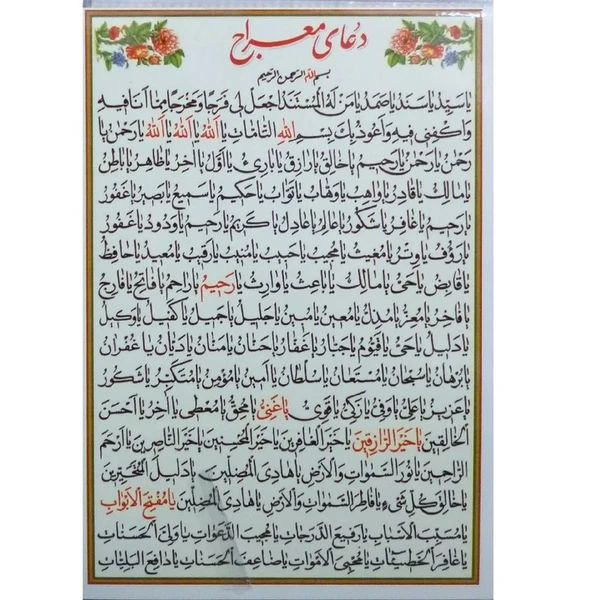 دعای معراج
بسم الله الرحمن الرحیم
یا سَیِّدُ یا سَنَدُ یا صَمَدُ یا مَن لَهُ المُستَنَدُ اِجعَل لی فَرَجًا وَمَخرَجًا مِمّا اَنَا فیهِ
وَاکفِنی فیهِ وَاَعُوذُ بِكَ بِسمِ اللهِ التّامّاتِ یا اَللهُ یا اَللهُ یا اَللهُ یا رَحمنُ یا
رَحمنُ یا رَحمنُ یا رَحیمُ یا خالِقُ یا رازِقُ یا بارِئُ یا اَوَّلُ یا آخِرُ یا ظاهِرُ یا باطِنُ
یا مالِكُ یا قادِرُ یا واهِبُ یا وَهّابُ یا تَوّابُ یا حَکیمُ یا سَمیعُ یا بَصیرُ یا غَفُورُ
یا رَحیمُ یا غافِرُ یا شَکُورُ یا عالِمُ یا عادِلُ یا کَریمُ یا رَحیمُ یا وَدُودُ یا غَفُورُ
یا رَؤُفُ یا وِترُ یا مُغیثُ یا مُجیبُ یا حَبیبُ یا مُنیبُ یا رَقیبُ یا مُعیدُ یا حافِظُ
یا قابِضُ یا حَیُّ یا مالِكُ یا باعِثُ یا وارِثُ یا رَحیمُ یا راحِمُ یا فاتِحُ یا فارِجُ
یا فاخِرُ یا مُعِزُّ یا مُذِلُّ یا مُعینُ یا مُبینُ یا جَلیلُ یا جَمیلُ یا کَفیلُ یا وَکیلُ
یا دَلیلُ یا حَیُّ یا قَیُّومُ یا جَبّارُ یا غَفّارُ یا حَنّانُ یا مَنّانُ یا دَیّانُ یا غُفرانُ
یا بُرهانُ یا سُبحانُ یا مُستَعانُ یا سُلطانُ یا اَمینُ یا مُؤمِنُ یا مُتَکَبِّرُ یا شَکُورُ
یا عَزیزُ یا عَلِیُّ یا وَفِیُّ یا زَکِیُّ یا قَوِیُّ یا غَنِیُّ یا مُحِقُّ یا مُعطی یا آخِرُ یا اَحسَنَ
الخالِقینَ یا خَیرَ الرّازِقینَ یا خَیرَ الغافِرینَ یا خَیرَ المُحسِنینَ یا خَیرَ النّاصِرینَ یا اَرحَمَ
الرّاحِمینَ یا نُورَ السَّمواتِ وَالاَرضِ یا هادِیَ المُضِلّینَ یا دَلیلَ المُتَحَیِّرینَ
یا خالِقَ کُلِّ شَیءٍ یا فاطِرَ السَّمواتِ وَالاَرضِ یا هادِیَ المُضِلّینَ یا مُفَتِّحَ الاَبوابِ
یا مُسَبِّبَ الاَسبابِ یا رَفیعَ الدَّرَجاتِ یا مُجیبَ الدَّعَواتِ یا وَلِیَّ الحَسَناتِ
یا غافِرَ الخَطیئاتِ یا مُحیِیَ الاَمواتِ یا ضاعِفَ الحَسَناتِ یا دافِعَ البَلِیّاتِ